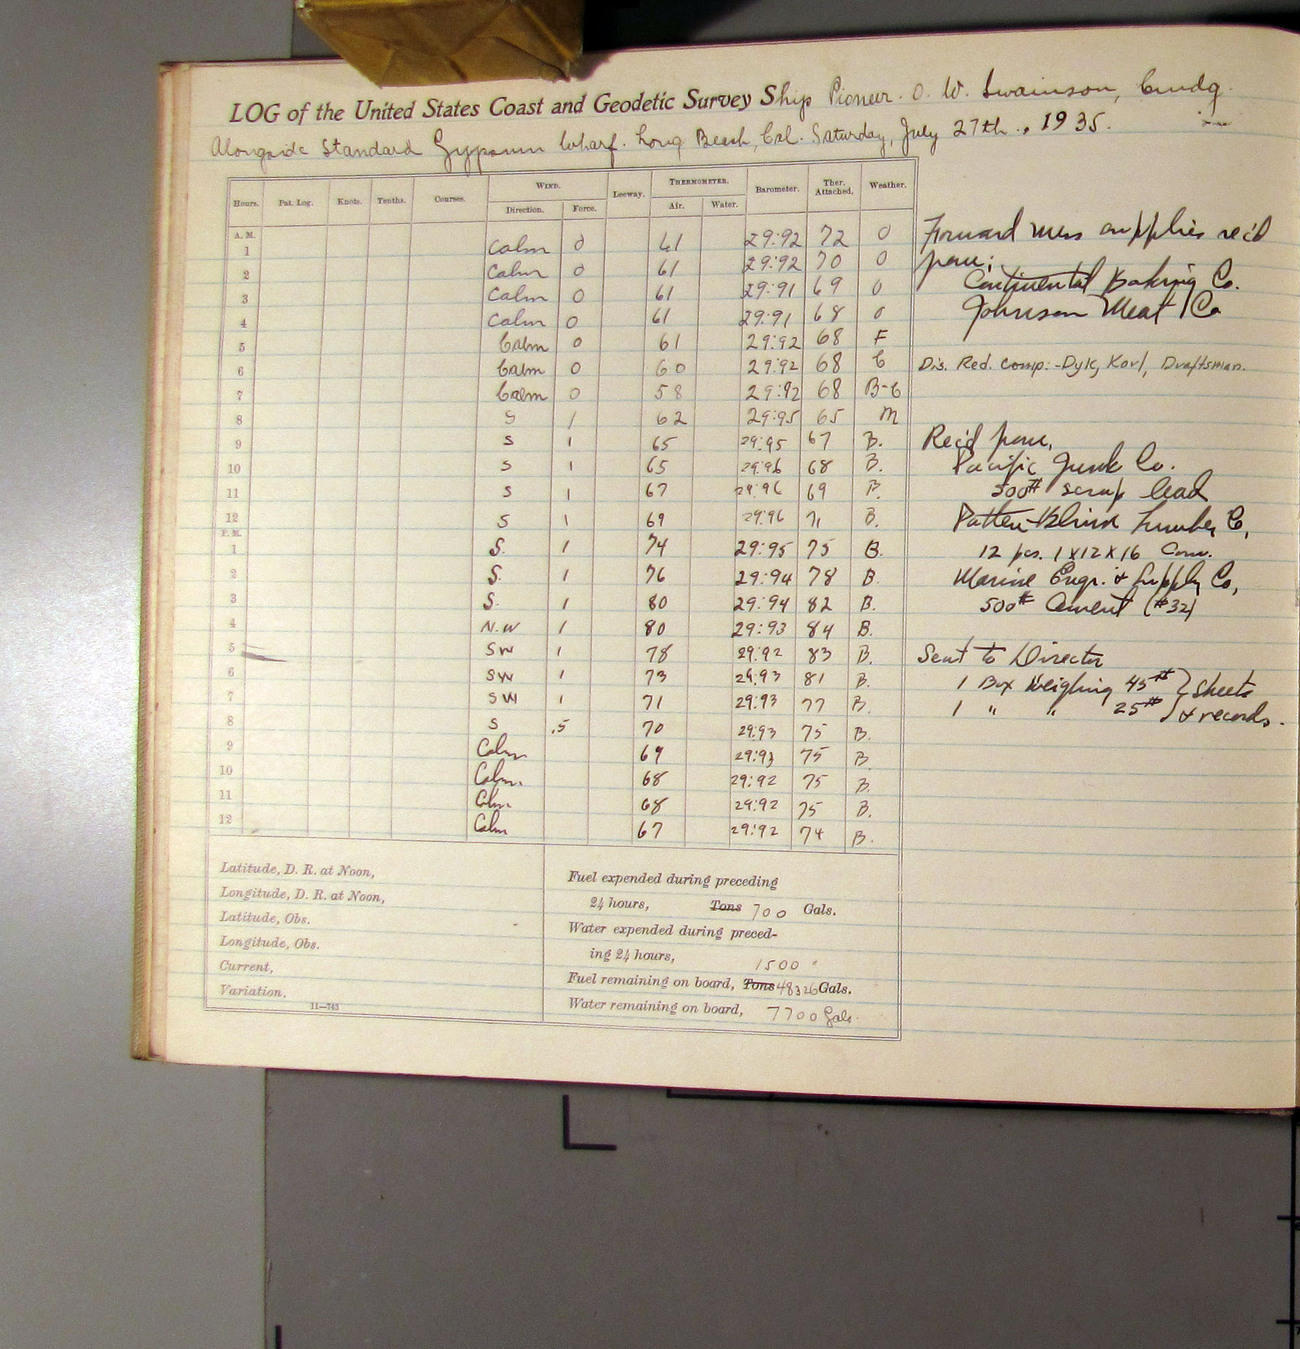 LOG of the United States Coast and Geodetic Survey Ship Pioneer. O. W. Swainson, Cmdg.
Alongside Standard Gypsum Wharf. Long Beach, Cal. Saturday, July 27th., 1935.
Hours. Pat. Log. Knots. Tenths. Courses. WIND. Direction. Force. Leeway. THERMOMETER. Air. Water. Barometer. Ther. Attached. Weather.
A. M.
1 Calm 0 61 29:92 72 0
2 Calm 0 61 29:92 70 0
3 Calm 0 61 29:91 69 0
4 Calm 0 61 29:91 68 0
5 Calm 0 61 29:92 68 F
6 Calm 0 60 29:92 68 C
7 Calm 0 58 29:92 68 B-C
8 S 1 62 29:95 65 M
9 S 1 65 29:95 67 B.
10 S 1 65 29:96 68 B.
11 S 1 67 29:96 69 B.
12 S 1 69 29:96 71 B.
P. M.
1 S. 1 74 29:95 75 B.
2 S. 1 76 29:94 78 B.
3 S. 1 80 29:94 82 B.
4 N.W 1 80 29:93 84 B.
5 SW 1 78 29:92 83 B.
6 SW 1 73 29:93 81 B.
7 SW 1 71 29:93 77 B.
8 S .5 70 29:93 75 B.
9 Calm 69 29:93 75 B.
10 Calm. 68 29:92 75 B.
11 Calm 68 29:92 75 B.
12 Calm 67 29:92 74 B.
Forward mess supplies rec'd
from:
Continental Baking Co.
Johnson Meat Co
Dis. Red. Comp:- Dyk, Karl, Draftsman.
Rec'd from,
Pacific Junk Co.
500# scrap lead
Patten-Blinn Lumber Co,
12 pcs. 1x12x16 Com.
Marine Engr. & Supply Co,
500# Cement (#32)
Sent to Director
1 Box Weighing 45# } Sheets
1 " " 25# } & records.
Latitude, D. R. at Noon,
Longitude, D. R. at Noon,
Latitude, Obs.
Longitude, Obs.
Current,
Variation.
11—743
Fuel expended during preceding
24 hours, Tons 700 Gals.
Water expended during preced-
ing 24 hours, 1500 "
Fuel remaining on board, Tons 48326 Gals.
Water remaining on board, 7700 Gals.